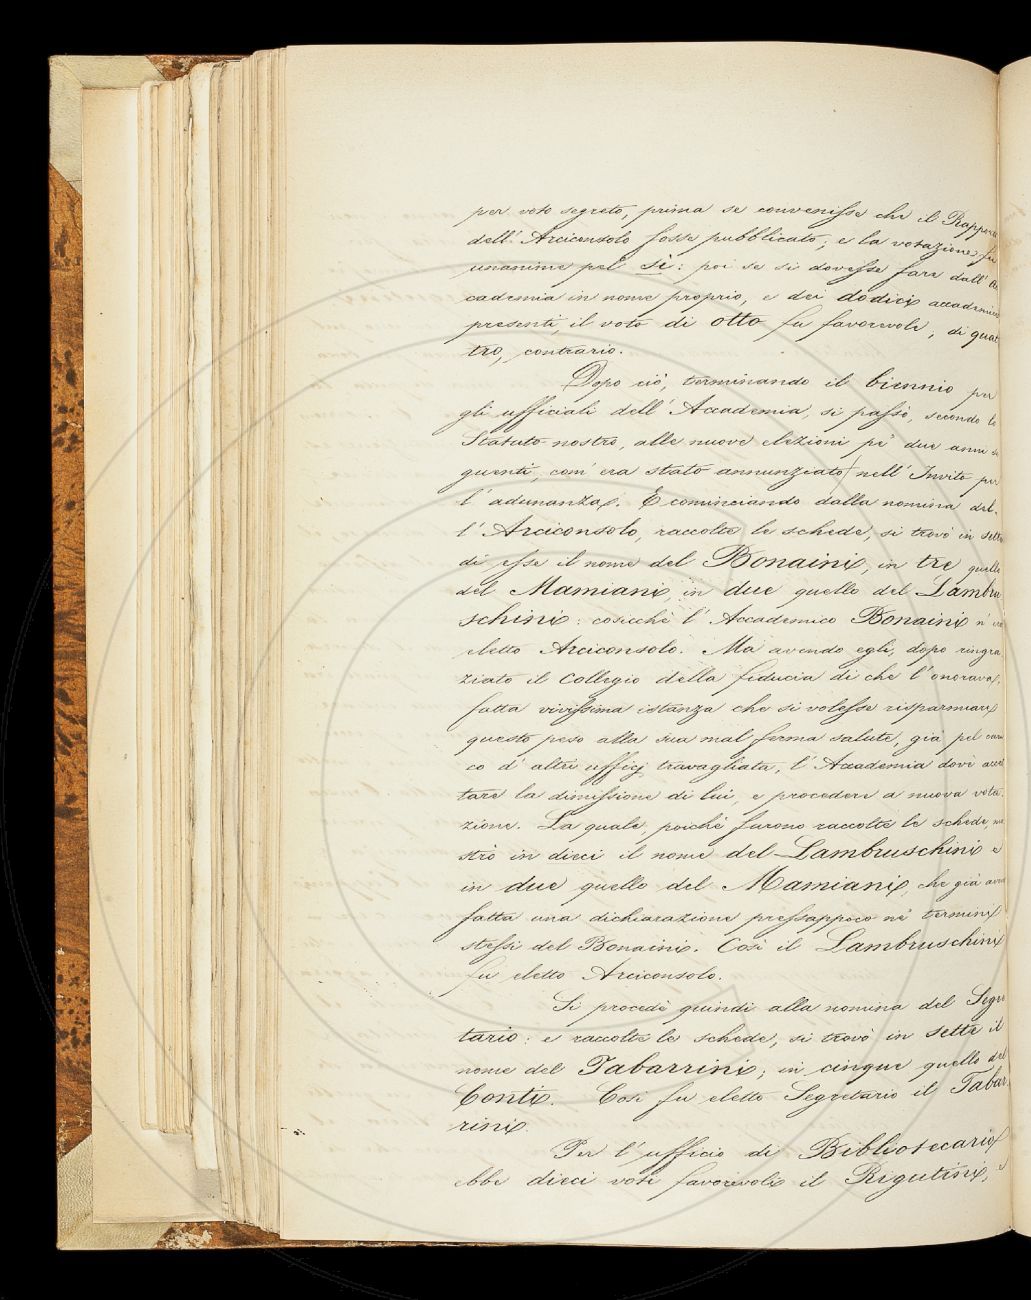 per voto segreto, prima se convenisse che il Rapporto
dell' Arciconsolo fosse pubblicato, e la votazione fu
unanime pel sì: poi se si dovesse fare dall' Ac
cademia in nome proprio, e dei dodici accademici
presenti, il voto di otto fu favorevole, di quat
tro, contrario.
Dopo ciò, terminando il biennio per
gli ufficiali dell' Accademia, si passò, secondo lo
Statuto nostro, alle nuove elezioni pe' due anni se
guenti, com' era stato annunziato nell' Invito per
l' adunanza. E cominciando dalla nomina del-
l' Arciconsolo, raccolte le schede, si trovò in sette
di esse il nome del Bonaini, in tre quello
del Mamiani, in due quello del Lambru
schini: cosicchè l' Accademico Bonaini n' era
eletto Arciconsolo. Ma avendo egli, dopo ringra
ziato il Collegio della fiducia di che l' onorava,
fatta vivissima istanza che si volesse risparmiare
questo peso alla sua mal ferma salute, già pel cari
co d' altri ufficj travagliata, l' Accademia dovè accet
tare la dimissione di lui, e procedere a nuova vota
zione. La quale, poichè furono raccolte le schede, mo
strò in dieci il nome del Lambruschini e
in due quello del Mamiani, che già avea
fatta una dichiarazione pressappoco ne' termini
stessi del Bonaini. Così il Lambruschini
fu eletto Arciconsolo.
Si procedè quindi alla nomina del Segre
tario: e raccolte le schede, si trovò in sette il
nome del Tabarrini; in cinque quello del
Conti. Così fu eletto Segretario il Tabar
rini.
Per l' ufficio di Bibliotecario
ebbe dieci voti favorevoli il Rigutini, e